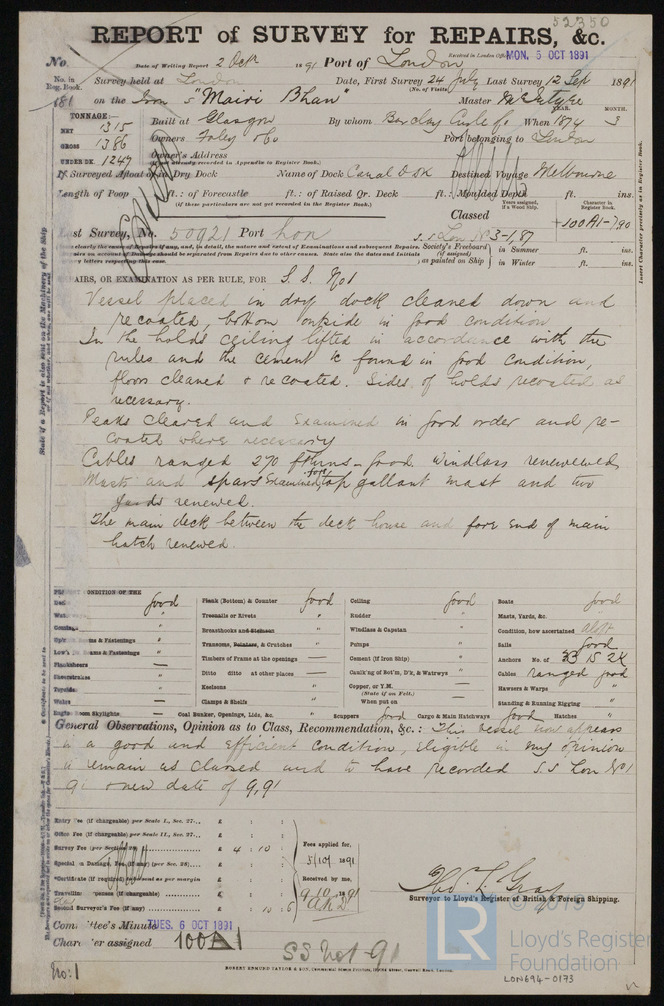 52350
REPORT of SURVEY for REPAIRS, &c.
No. Date of Writing Report 2 Oct 1891 Port of London Received in London Office MON. 5 OCT 1891
No. in Reg. Book. Survey held at London Date, First Survey 24 July Last Survey 12 Sep 1891
(No. of Visits)
181 on the Iron S "Mairi Bhan" Master McIntyre
TONNAGE:— YEAR. MONTH.
NET 1315 Built at Glasgow By whom Barclay Curle & Co When 1874 3
GROSS 1386 Owners Foley & Co Port belonging to London
UNDER DK. 1247 Owner's Address
(If not already recorded in Appendix to Register Book.)
If Surveyed Afloat or in Dry Dock Name of Dock Canal D Dk Destined Voyage Melbourne
Length of Poop ft.: of Forecastle ft.: of Raised Qr. Deck ft.: Moulded Depth ft. ins.
(If these particulars are not yet recorded in the Register Book.)
Years assigned, if a Wood Ship. Character in Register Book.
Classed +100A1-7,90
Last Survey, No. 50921 Port Lon S.S Lon No3-1,87
Society's Freeboard (if assigned) as painted on Ship in Summer ft. ins.
in Winter ft. ins.
REPAIRS, OR EXAMINATION AS PER RULE, FOR S.S. No1
Vessel placed in dry dock cleaned down and
recoated, bottom outside in good condition
In the holds ceiling lifted in accordance with the
rules and the cement &c found in good condition,
floors cleaned & recoated. Sides of holds recoated as
necessary.
Peaks cleared and Examined in good order and re-
coated where necessary
Cables ranged 270 fthms - good. Windlass renewed
Masts and spars Examined, fore top gallant mast and two
yards renewed.
The main deck between the deck house and fore end of main
hatch renewed.
PRESENT CONDITION OF THE
good Plank (Bottom) & Counter good Ceiling good Boats good
Treenails or Rivets " Rudder " Masts, Yards, &c. "
Breasthooks and Stemson " Windlass & Capstan " Condition, how ascertained aloft
Transoms, Pointers, & Crutches " Pumps " Sails good
Timbers of Frame at the openings — Cement (if Iron Ship) " Anchors No. of 3B 1S 2K
Ditto ditto at other places — Caulk'ng of Bot'm, D'k, & Watrwys " Cables ranged good
Keelsons " Copper, or Y.M. — Hawsers & Warps "
(State if on Felt.)
Clamps & Shelfs " When put on Standing & Running Rigging "
Engine Room Skylights — Coal Bunker, Openings, Lids, &c. " Scuppers good Cargo & Main Hatchways good Hatches "
General Observations, Opinion as to Class, Recommendation, &c.: This vessel now appears
in a good and efficient condition, eligible in my opinion
to remain as classed and to have recorded S.S Lon No1
91 & new date of 9,91
Entry Fee (if chargeable) per Scale I., Sec. 27... £ : :
Office Fee (if chargeable) per Scale II., Sec. 27... £ : :
Survey Fee (if chargeable) per Scale ... £ 4 : 10 :
Special or Damage Fee, (if any) (per Sec. 28) £ : :
*Certificate (if required) to be sent as per margin £ : :
Travelling Expenses (if chargeable) £ : :
Second Surveyor's Fee (if any) £ : 10 : 6
Fees applied for,
5/10/1891
Received by me,
9.10.1891
Thos. L Gray
Surveyor to Lloyd's Register of British & Foreign Shipping.
Committee's Minute TUES. 6 OCT 1891
Character assigned 100A1
SS No1-91
No: 1
ROBERT EDMUND TAYLOR & SON
State if a Report is also sent on the Machinery of the Ship
Insert Character precisely as in Register Book.
LR
© 2019
Lloyd's Register
Foundation
LON694-0173